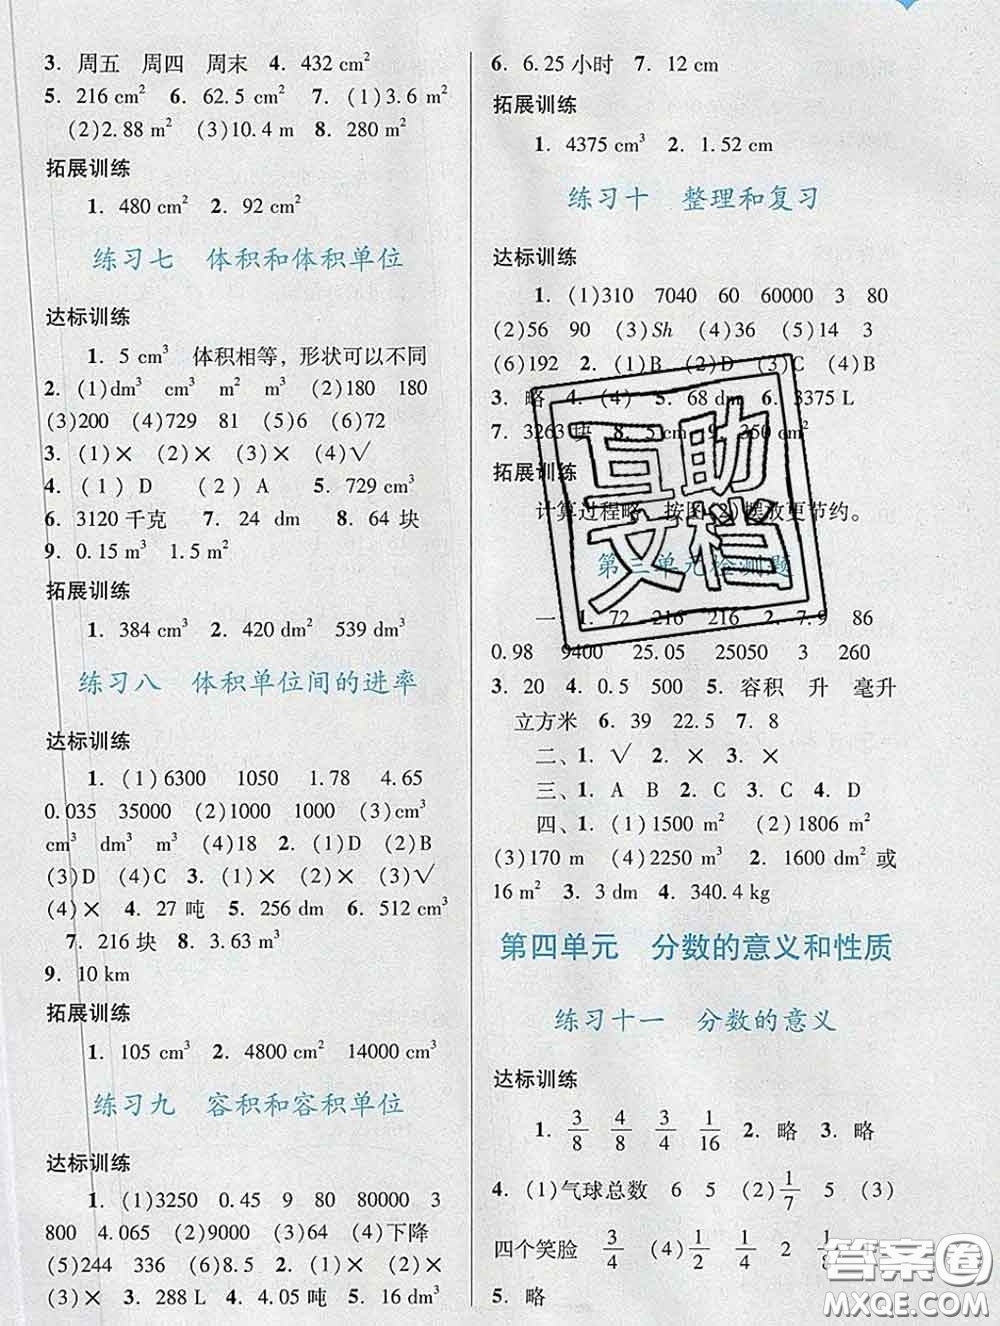 3. 周五 周四 周末 4. 432 cm²
5. 216 cm² 6. 62.5 cm² 7. (1)3.6 m²
(2)2.88 m² (3)10.4 m 8. 280 m²
拓展训练
1. 480 cm² 2. 92 cm²
练习七 体积和体积单位
达标训练
1. 5 cm³ 体积相等，形状可以不同
2. (1)dm³ cm³ m² m³ (2)180 180
(3)200 (4)729 81 (5)6 (6)72
3. (1)× (2)× (3)× (4)√
4. (1) D (2) A 5. 729 cm³
6. 3120 千克 7. 24 dm 8. 64 块
9. 0.15 m³ 1.5 m²
拓展训练
1. 384 cm³ 2. 420 dm² 539 dm³
练习八 体积单位间的进率
达标训练
1. (1)6300 1050 1.78 4.65
0.035 35000 (2)1000 1000 (3)cm³
cm³ dm³ m³ (4)18 2. (1)D (2)B
(3)D (4)C 3. (1)× (2)× (3)√
(4)× 4. 27 吨 5. 256 dm 6. 512 cm³
7. 216 块 8. 3.63 m³
9. 10 km
拓展训练
1. 105 cm³ 2. 4800 cm² 14000 cm³
练习九 容积和容积单位
达标训练
1. (1)3250 0.45 9 80 80000 3
800 4.065 (2)9000 (3)64 (4)下降
(5)244 336 (6)36 2. (1)× (2)×
(3)× 3. 288 L 4. 4.05 吨 5. 16 dm³
6. 6.25 小时 7. 12 cm
拓展训练
1. 4375 cm³ 2. 1.52 cm
练习十 整理和复习
达标训练
1. (1)310 7040 60 60000 3 80
(2)56 90 (3)Sh (4)36 (5)14 3
(6)192 2. (1)B (2)D (3)C (4)B
3. 略 4. (4) 5. 68 dm 6. 3375 L
7. 3263 块 8. 5 cm 9. 350 dm²
拓展训练
计算过程略 按图(2)摆放更节约。
第三单元检测题
一、1. 72 216 216 2. 7.9 86
0.98 9400 25.05 25050 3 260
3. 20 4. 0.5 500 5. 容积 升 毫升
立方米 6. 39 22.5 7. 8
二、1. √ 2. × 3. ×
三、1. A B 2. C 3. C 4. D
四、1. (1)1500 m² (2)1806 m²
(3)170 m (4)2250 m³ 2. 1600 dm² 或
16 m² 3. 3 dm 4. 340.4 kg
第四单元 分数的意义和性质
练习十一 分数的意义
达标训练
1. 3/8 4/8 3/4 1/16 2. 略 3. 略
4. (1)气球总数 6 5 (2) 1/7 5 (3)
四个笑脸 3/4 (4) 1/2 1/4 2 1/8
5. 略
互助
文档
答案圈
MXQE.COM